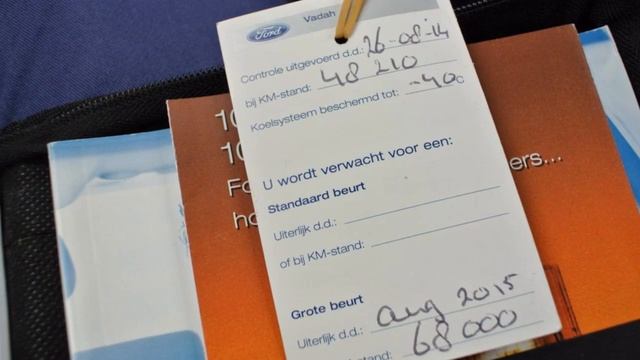 Ford
Vadah
Controle uitgevoerd d.d.: 26-08-14
bij KM-stand: 48 210
Koelsysteem beschermd tot: -40c
U wordt verwacht voor een:
Standaard beurt
Uiterlijk d.d.:
of bij KM-stand:
Grote beurt
Uiterlijk d.d.: aug 2015
stand: 68 000
10
10
Fo
ers...
ho